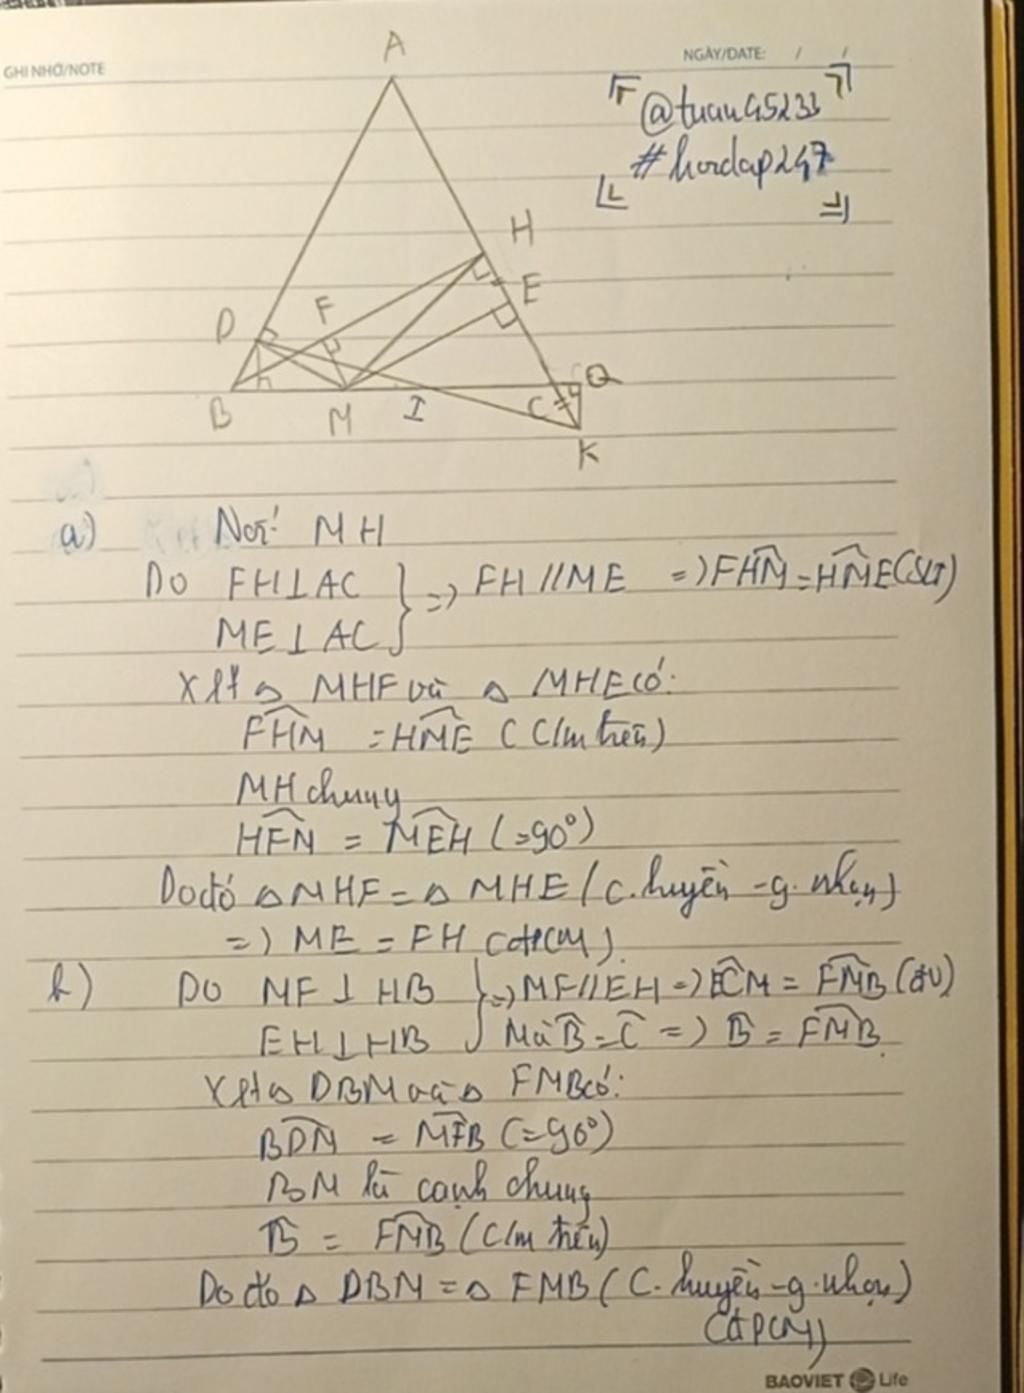 GHI NHỚ/NOTE
NGÀY/DATE: / /
@tuan45233
#hoidap247
A
H
E
D
F
B
M
I
C
Q
K
a) Nối MH
Do FH⊥AC
ME⊥AC
} => FH//ME => FHM = HME (SLT)
Xét △ MHF và △ MHE có:
FHM = HME (C/m trên)
MH chung
HFM = MEH (=90°)
Do đó △MHF = △ MHE (c.huyền - g.nhọn)
=> ME = FH (đPCM)
b) Do MF ⊥ HB
EH⊥HB
} => MF//EH => ECM = FMB (đv)
Mà B = C => B = FMB
Xét △ DBM và △ FMB có:
BDM = MFB (=90°)
BM là cạnh chung
B = FMB (C/m trên)
Do đó △ DBM = △ FMB (C.huyền - g.nhọn)
(đPCM)
BAOVIET Life